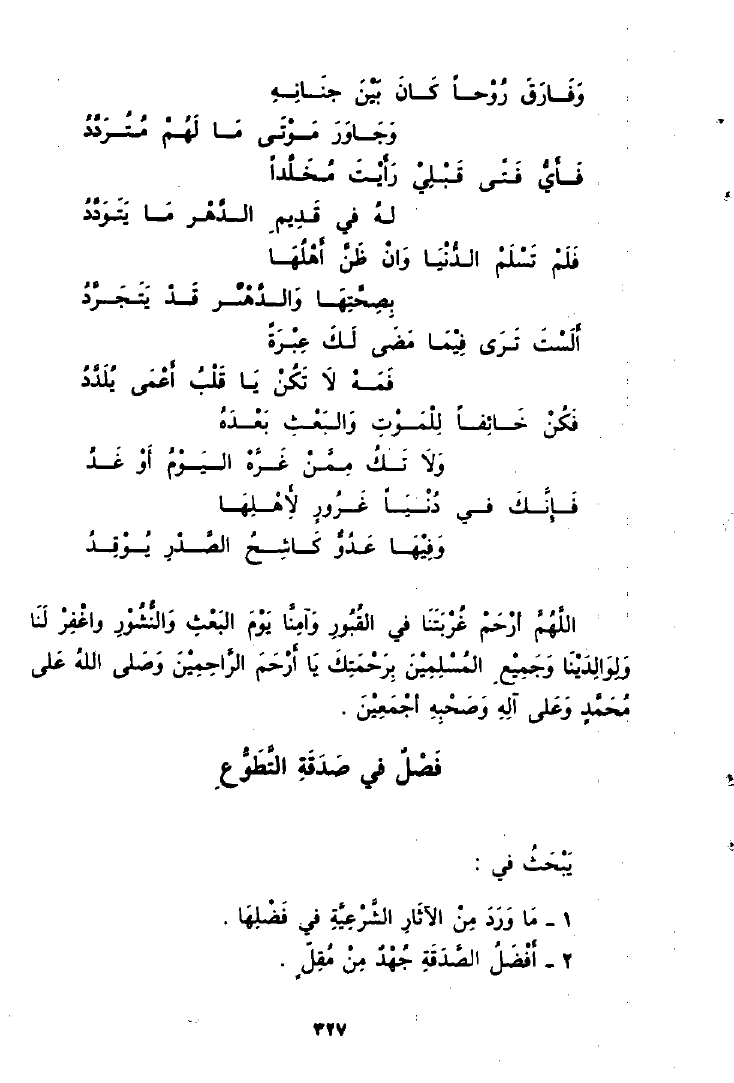 وَفَارَقَ رُوْحاً كَانَ بَيْنَ جنَانِهِ
وَجَاوَرَ مَوْتَى مَا لَهُمْ مُتَرَدَّدُ
فَأَيُّ فَتَى قَبْلِيْ رَأَيْتَ مُخَلَّداً
لَهُ في قَدِيمِ الدَّهْرِ مَا يَتَوَدَّدُ
فَلَمْ تَسْلَمْ الدُّنْيَا وَانْ ظَنَّ أَهْلُهَا
بِصِحَّتِهَا وَالدَّهْرُ قَدْ يَتَجَرَّدُ
أَلَسْتَ تَرَى فِيْمَا مَضَى لَكَ عِبْرَةً
فَمَهْ لاَ تَكُنْ يَا قَلْبُ أَعْمَى يُلَدَّدُ
فَكُنْ خَائِفاً لِلْمَوْتِ وَالبَعْثِ بَعْدَهُ
وَلاَ تَكُ مِمَّنْ غَرَّهُ اليَوْمُ أَوْ غَدُ
فَإِنَّكَ في دُنْيَاً غَرُورٍ لأَهْلِهَا
وَفِيْهَا عَدُوٌّ كَاشِحُ الصَّدْرِ يُوْقِدُ
اللَّهُمَّ أرْحَم غُرْبَتَنَا في القُبُورِ وَآمِنَّا يَوْمَ البَعْثِ وَالنُّشُوْرِ واغْفِرْ لَنَا
وَلِوَالِدَيْنَا وَجَمِيْعِ المُسْلِمِيْنَ بِرَحْمَتِكَ يَا أَرْحَمَ الرَّاحِمِيْنَ وَصَلى اللهُ عَلى
مُحَمَّدٍ وَعَلى آلِهِ وَصَحْبِهِ أجْمَعِيْنَ .
فَصْلٌ في صَدَقَةِ التَّطَوُّعِ
يَبْحَثُ في :
١ ـ مَا وَرَدَ مِنْ الآثَارِ الشَّرْعِيَّةِ في فَضْلِهَا .
٢ ـ أَفْضَلُ الصَّدَقَةِ جُهْدٌ مِنْ مُقِلّ .
٣٢٧